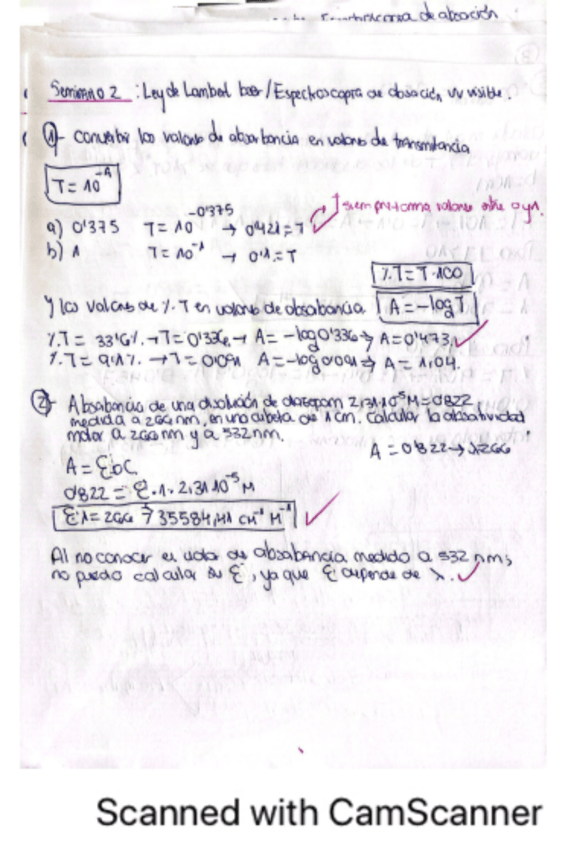 de absorción
Seminario 2: Ley de Lambert beer / Espectroscopia de absorción UV visible.
① Convertir los valores de absorbancia en valores de transmitancia
T = 10^-A
siempre toma valores entre 0 y 1.
a) 0'375 T = 10^-0'375 → 0'421 = T
b) 1 T = 10^-1 → 0'1 = T
%T = T·100
Y los valores de %T en valores de absorbancia A = -log T
%T = 33'6% → T = 0'336 → A = -log 0'336 → A = 0'473
%T = 9'1% → T = 0'091 A = -log 0'091 → A = 1'04.
② Absorbancia de una disolución de diazepam 2,31·10^-5 M = 0'822
medida a 266 nm, en una cubeta de 1 cm. Calcular la absortividad
molar a 266 nm y a 532 nm.
A = 0'822 → λ266
A = εbC
0'822 = ε·1·2,31·10^-5 M
ελ = 266 → 35584,41 cm^-1 M^-1
Al no conocer el valor de absorbancia medido a 532 nms,
no puedo calcular su ε, ya que ε depende de λ.
Scanned with CamScanner